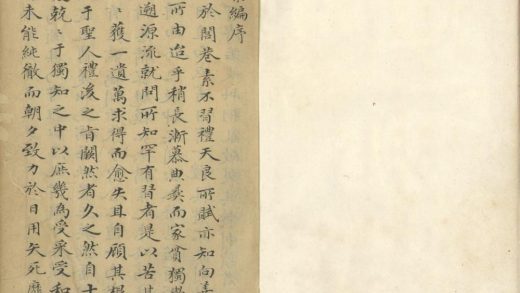 編序
於閭巷素不習禮天良所賦亦知向善
所由迨乎稍長漸慕典彛而家貧獨
遡源流就問所知罕有習者是以苦其
獲一遺萬求得而愈失且自顧其
于聖人禮後之旨闕然者久之然自十
乾〻于獨知之中以庶幾為受采受和
未能純徹而朝夕致力於日用矢死靡